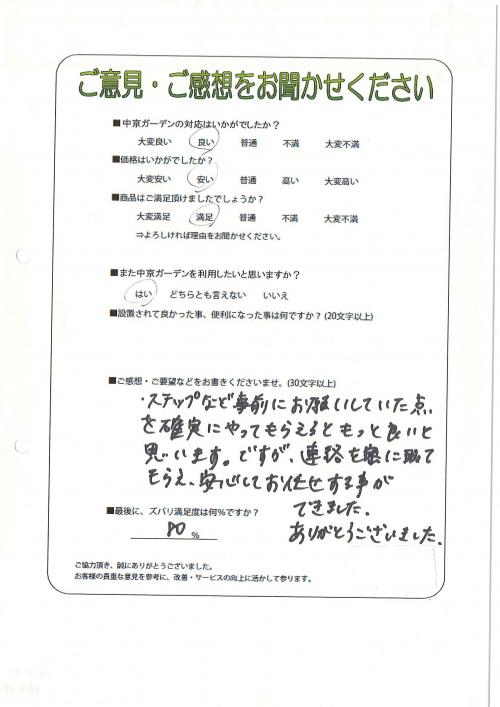 ご意見・ご感想をお聞かせください
■中京ガーデンの対応はいかがでしたか？
大変良い 良い 普通 不満 大変不満
■価格はいかがでしたか？
大変安い 安い 普通 高い 大変高い
■商品はご満足頂けましたでしょうか？
大変満足 満足 普通 不満 大変不満
⇒よろしければ理由をお聞かせください。
■また中京ガーデンを利用したいと思いますか？
はい どちらとも言えない いいえ
■設置されて良かった事、便利になった事は何ですか？(20文字以上)
■ご感想・ご要望などをお書きくださいませ。(30文字以上)
・ステップなど事前にお願いしていた点
を確実にやってもらえるともっと良いと
思います。ですが、連絡を密に取って
もらえ、安心してお任せする事が
できました。
ありがとうございました。
■最後に、ズバリ満足度は何％ですか？
80 %
ご協力頂き、誠にありがとうございました。
お客様の貴重な意見を参考に、改善・サービスの向上に活かして参ります。